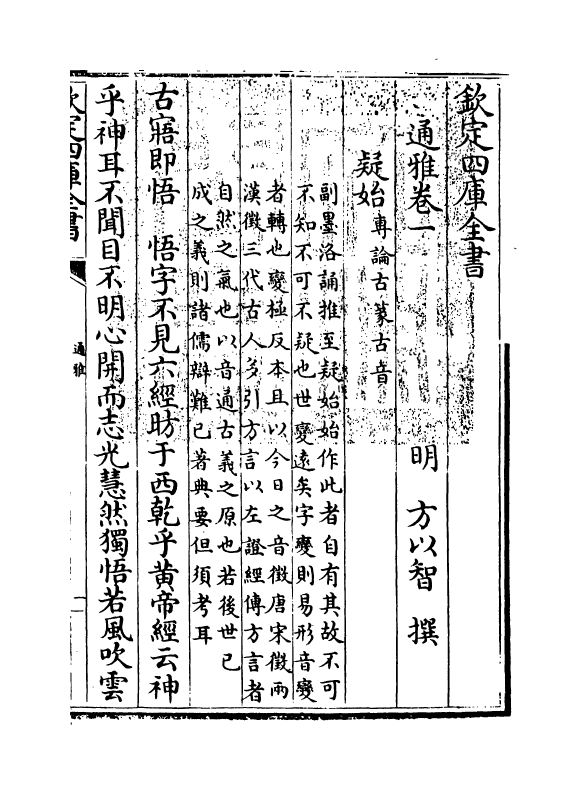 欽定四庫全書
通雅卷一
明 方以智 撰
疑始專論古篆古音
副墨洛誦推至疑始始作此者自有其故不可
不知不可不疑也世變遠矣字變則易形音變
者轉也變極反本且以今日之音徵唐宋徵兩
漢徵三代古人多引方言以左證經傳方言者
自然之氣也以音通古義之原也若後世已
成之義則諸儒辯難已著典要但須考耳
古寤即悟 悟字不見六經昉于西乾乎黄帝經云神
乎神耳不聞目不明心開而志光慧然獨悟若風吹雲
欽定四庫全書
通雅
一